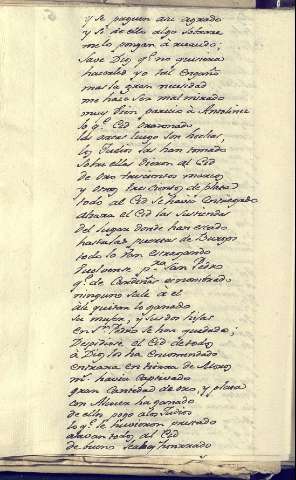 y se paguen a su agrado
y si de ello algo sobrare
me lo pongan à recaudo;
save Dios qᵉ no quisiera
hacerles yo tal engaño
mas la gran necesidad
me hace ser mal mirado
muy bien parecio à Antolinez
lo qᵉ el Cid ordenado
las arcas luego son hechas
los Judios las han tomado
sobre ellas dieron al Cid
de oro trescientos marcos
y otros trescientos de plata
todo al Cid se havia entregado
alzara el Cid las tiendas
del lugar donde han estado
hasta las puertas de Burgos
todo lo van estragando
buelvense pᵃʳᵃ San Pedro
qᵉ de Cardeña es nombrado
ninguno sale à el
à le quitar lo ganado
su muger, y sus dos hijas
en Sⁿ Pedro se han quedado;
Despidese el Cid de todos
à Dios los ha encomendado
entrara en tierra de Moros
mˢ havia captivado
gran cantidad de oro, y plata
con Alvar ha ganado
de ello pagó a los Judios
lo qᵉ le huvieron prestado
alavan todos al Cid
de bueno, leal y honrrado